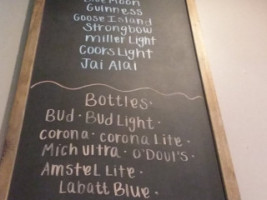 Blue Moon
Guinness
Goose Island
Strongbow
Miller Light
Coors Light
Jai Alai
Bottles.
Bud . Bud Light .
corona . corona Lite .
Mich ultra . O'Doul's .
Amstel Lite .
Labatt Blue .